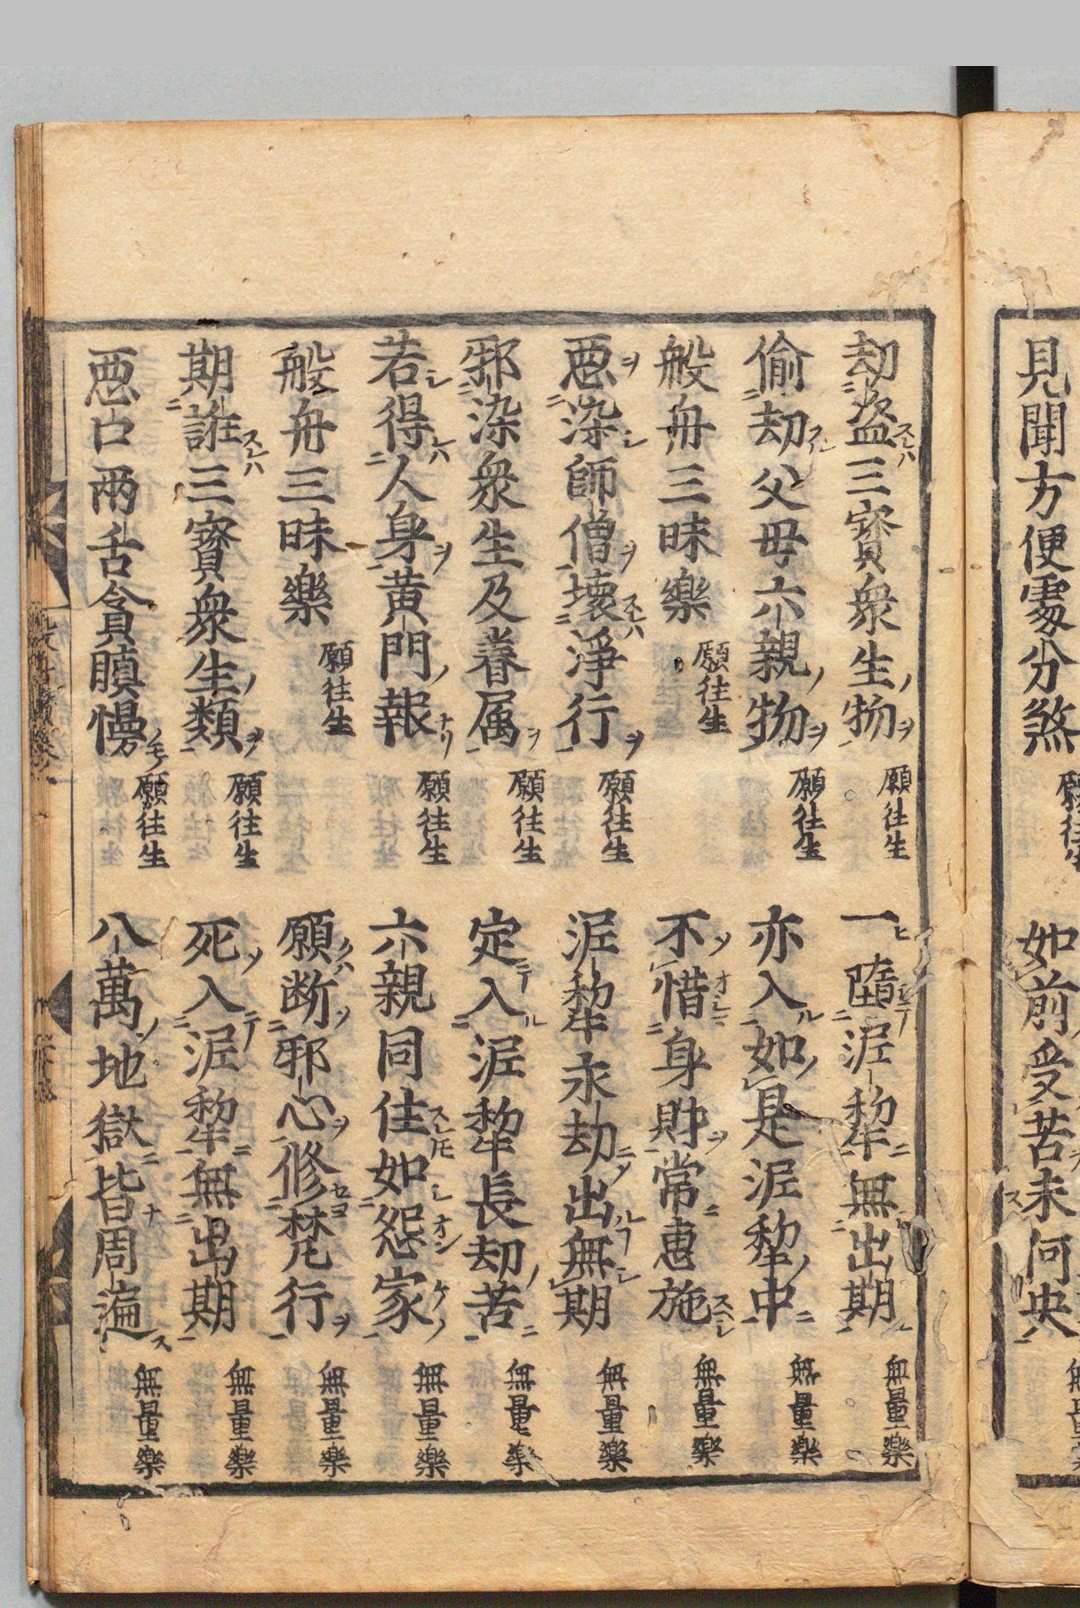 見聞方便處分煞 願往生 如前受苦未何央 無量樂
劫盗三寳衆生物 願往生 一墮泥犂無出期 無量樂
偷劫父母六親物 願往生 亦入如是泥犂中 無量樂
般舟三昧樂 願往生 不惜身財常惠施 無量樂
惡染師僧壞淨行 願往生 泥犂永劫出無期 無量樂
邪染衆生及眷属 願往生 定入泥犂長劫苦 無量樂
若得人身黄門報 願往生 六親同住如怨家 無量樂
般舟三昧樂 願往生 願断邪心修梵行 無量樂
期誑三寳衆生類 願往生 死入泥犂無出期 無量樂
惡口兩舌貪瞋慢 願往生 八萬地獄皆周遍 無量樂